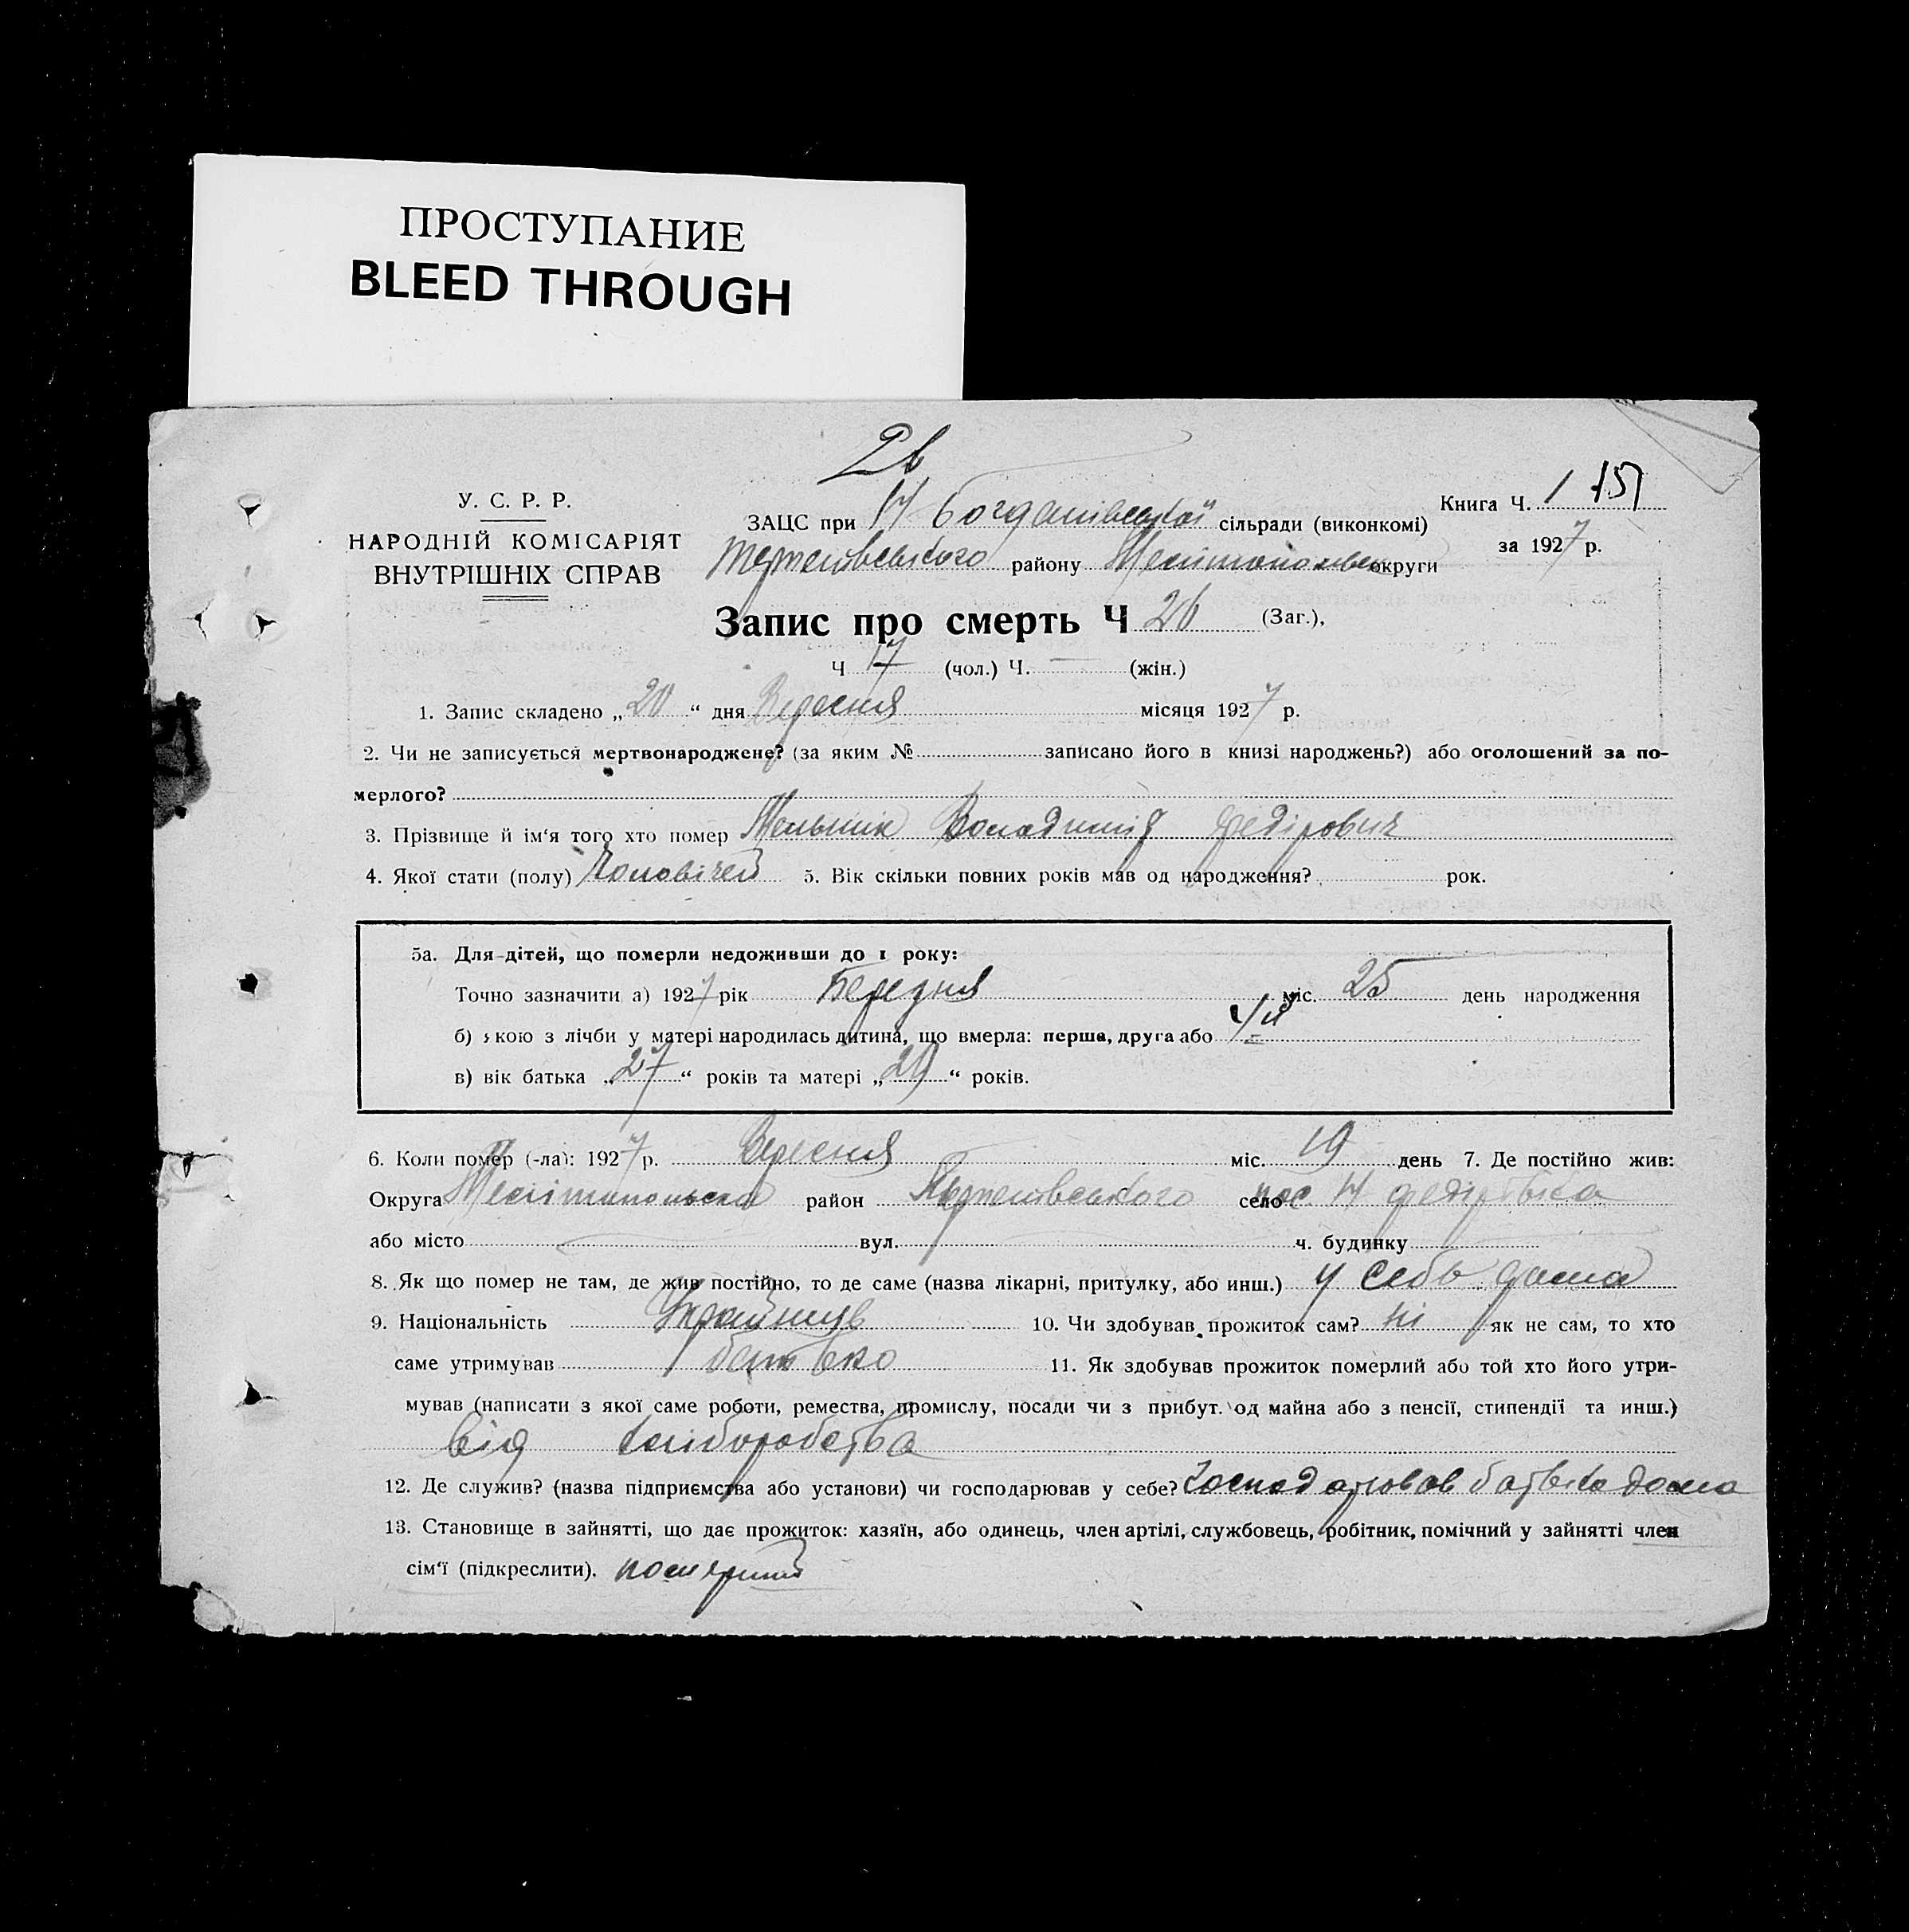 ПРОСТУПАНИЕ
BLEED THROUGH
У. С. Р. Р.
НАРОДНІЙ КОМІСАРІЯТ
ВНУТРІШНІХ СПРАВ
ЗАЦС при Н Богданівської сільради (виконкомі)
району Мелітопольс округи
Книга Ч. 1 151
за 1927 р.
Запис про смерть Ч 26 (Заг.),
Ч 17 (чол.) Ч. — (жін.)
1. Запис складено „20“ дня Вересня місяця 1927 р.
2. Чи не записується мертвонароджене? (за яким № записано його в книзі народжень?) або оголошений за по-
мерлого?
3. Прізвище й ім'я того хто помер Мельник Володимір Федірович
4. Якої стати (полу) Чоловічей 5. Вік скільки повних років мав од народження? рок.
5а. Для дітей, що померли недоживши до 1 року:
Точно зазначити а) 1927 рік Березня міс. 25 день народження
б) якою з лічби у матері народилась дитина, що вмерла: перша, друга або
в) вік батька „27“ років та матері „29“ років.
6. Коли помер (-ла): 1927 р. Вересня міс. 19 день 7. Де постійно жив:
Округа Мелітопольска район село пос. Н Федірівка
або місто вул. ч. будинку
8. Як що помер не там, де жив постійно, то де саме (назва лікарні, притулку, або инш.) у себе дома
9. Національність Українців 10. Чи здобував прожиток сам? Ні як не сам, то хто
саме утримував батько 11. Як здобував прожиток померлий або той хто його утри-
мував (написати з якої саме роботи, ремества, промислу, посади чи з прибут. од майна або з пенсії, стипендії та инш.)
від хліборобства
12. Де служив? (назва підприємства або установи) чи господарював у себе? господарював батько дома
13. Становище в зайнятті, що дає прожиток: хазяїн, або одинець, член артілі, службовець, робітник, помічний у зайнятті член
сім'ї (підкреслити).